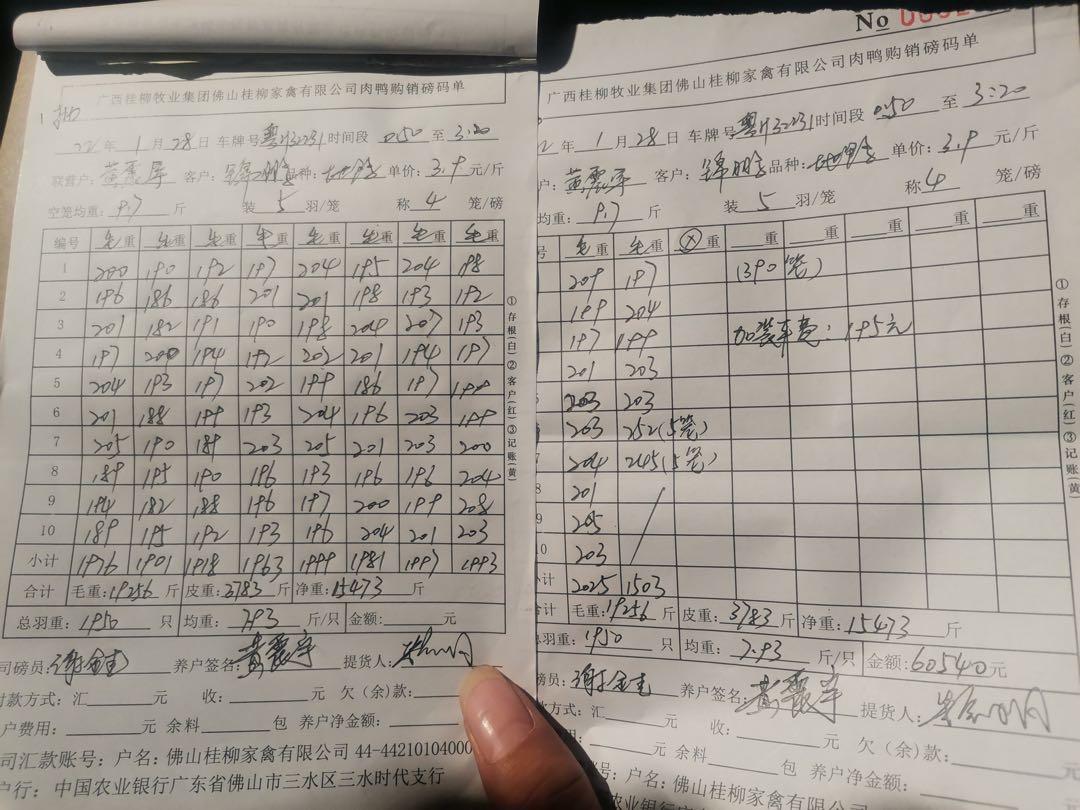 广西桂柳牧业集团佛山桂柳家禽有限公司肉鸭购销磅码单
22年 1月28日 车牌号 时间段 0:50 至 3:20
联营户： 客户： 品种： 单价：3.9元/斤
空笼均重：9.7斤 装5羽/笼 称4笼/磅
编号 毛重 毛重 毛重 毛重 毛重 毛重 毛重 毛重
1 200 190 192 197 204 195 204 198
2 196 186 186 201 201 198 193 192
3 201 182 191 190 198 204 207 193
4 197 200 194 192 202 201 194 197
5 204 193 197 202 199 186 197
6 201 188 199 193 204 196 203 199
7 205 190 189 203 205 201 203 200
8 189 195 190 196 193 196 196 204
9 194 182 188 196 197 200 199 208
10 189 195 192 193 196 204 201 203
小计 1976 1901 1918 1963 1999 1981 1997 1993
合计 毛重：19256斤 皮重：3783斤 净重：15473斤
总羽重：1950只 均重：7.93斤/只 金额： 元
司磅员： 养户签名：黄震宇 提货人：
付款方式：汇 元 收： 元 欠（余）款：
户费用： 元 余料 包 养户净金额：
司汇款账号：户名：佛山桂柳家禽有限公司 44-44210104000
户行：中国农业银行广东省佛山市三水区三水时代支行
①存根(白)②客户(红)③记账(黄)
No
广西桂柳牧业集团佛山桂柳家禽有限公司肉鸭购销磅码单
年 1月28日 车牌号 时间段 0:50 至 3:20
户： 客户： 品种： 单价：3.9元/斤
均重：9.7斤 装5羽/笼 称4笼/磅
号 毛重 毛重 重 重 重 重 重 重
209 197 (390笼)
199 204
197 199 加装车费：195元
201 203
203 203
203 252(5笼)
204 245(5笼)
201
205
10 203
小计 2025 1503
合计 毛重：19256斤 皮重：3783斤 净重：15473斤
总羽重：1950只 均重：7.93斤/只 金额：60540元
磅员： 养户签名：黄震宇 提货人：
款方式：汇 元 收： 元 欠（余）款：
元 余料 包 养户净金额： 元
户名：佛山桂柳家禽有限公司
中国农业银行
①存根(白)②客户(红)③记账(黄)